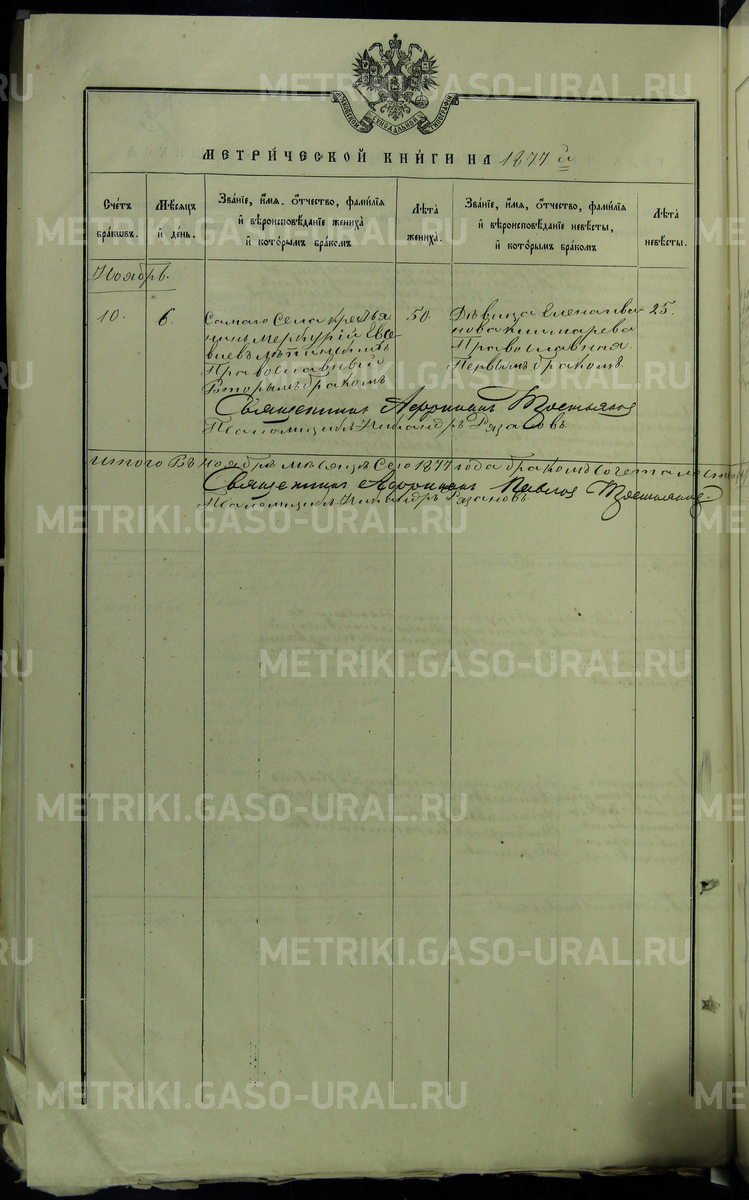 МОСКОВСКОЙ СѴНОДАЛЬНОЙ ТИПОГРАФІИ
МЕТРИ́ЧЕСКОЙ КНИ́ГИ НА 1877 й
Сче́тъ бра́кѡвъ.
Мѣ́сѧцъ и҆ де́нь.
Зва́нїе, и҆́мѧ, ѻ҆́тчество, фами́лїѧ и҆ вѣроисповѣ́данїе жениха̀ и҆ кото́рымъ бра́комъ
Лѣ́та жениха̀.
Зва́нїе, и҆́мѧ, ѻ҆́тчество, фами́лїѧ и҆ вѣроисповѣ́данїе невѣ́сты, и҆ кото́рымъ бра́комъ
Лѣ́та невѣ́сты.
Ноябрь.
10.
6.
Самаго Села крестья
нинъ Меркурій Евсе-
виевъ
Православный
Вторымъ бракомъ
50.
Дѣвица Елена Ива-
нова
Православная.
Первымъ бракомъ.
25.
Священникъ
Псаломщикъ Никандръ Рязановъ
Итого въ ноябрѣ мѣсяцѣ сего 1877 года бракомъ сочеталась
Священникъ Павлов
Псаломщикъ Никандръ Рязановъ.
METRIKI.GASO-URAL.RU
METRIKI.GASO-URAL.RU
METRIKI.GASO-URAL.RU
METRIKI.GASO-URAL.RU
METRIKI.GASO-URAL.RU
METRIKI.GASO-URAL.RU
METRIKI.GASO-URAL.RU
METRIKI.GASO-URAL.RU
METRIKI.GASO-URAL.RU